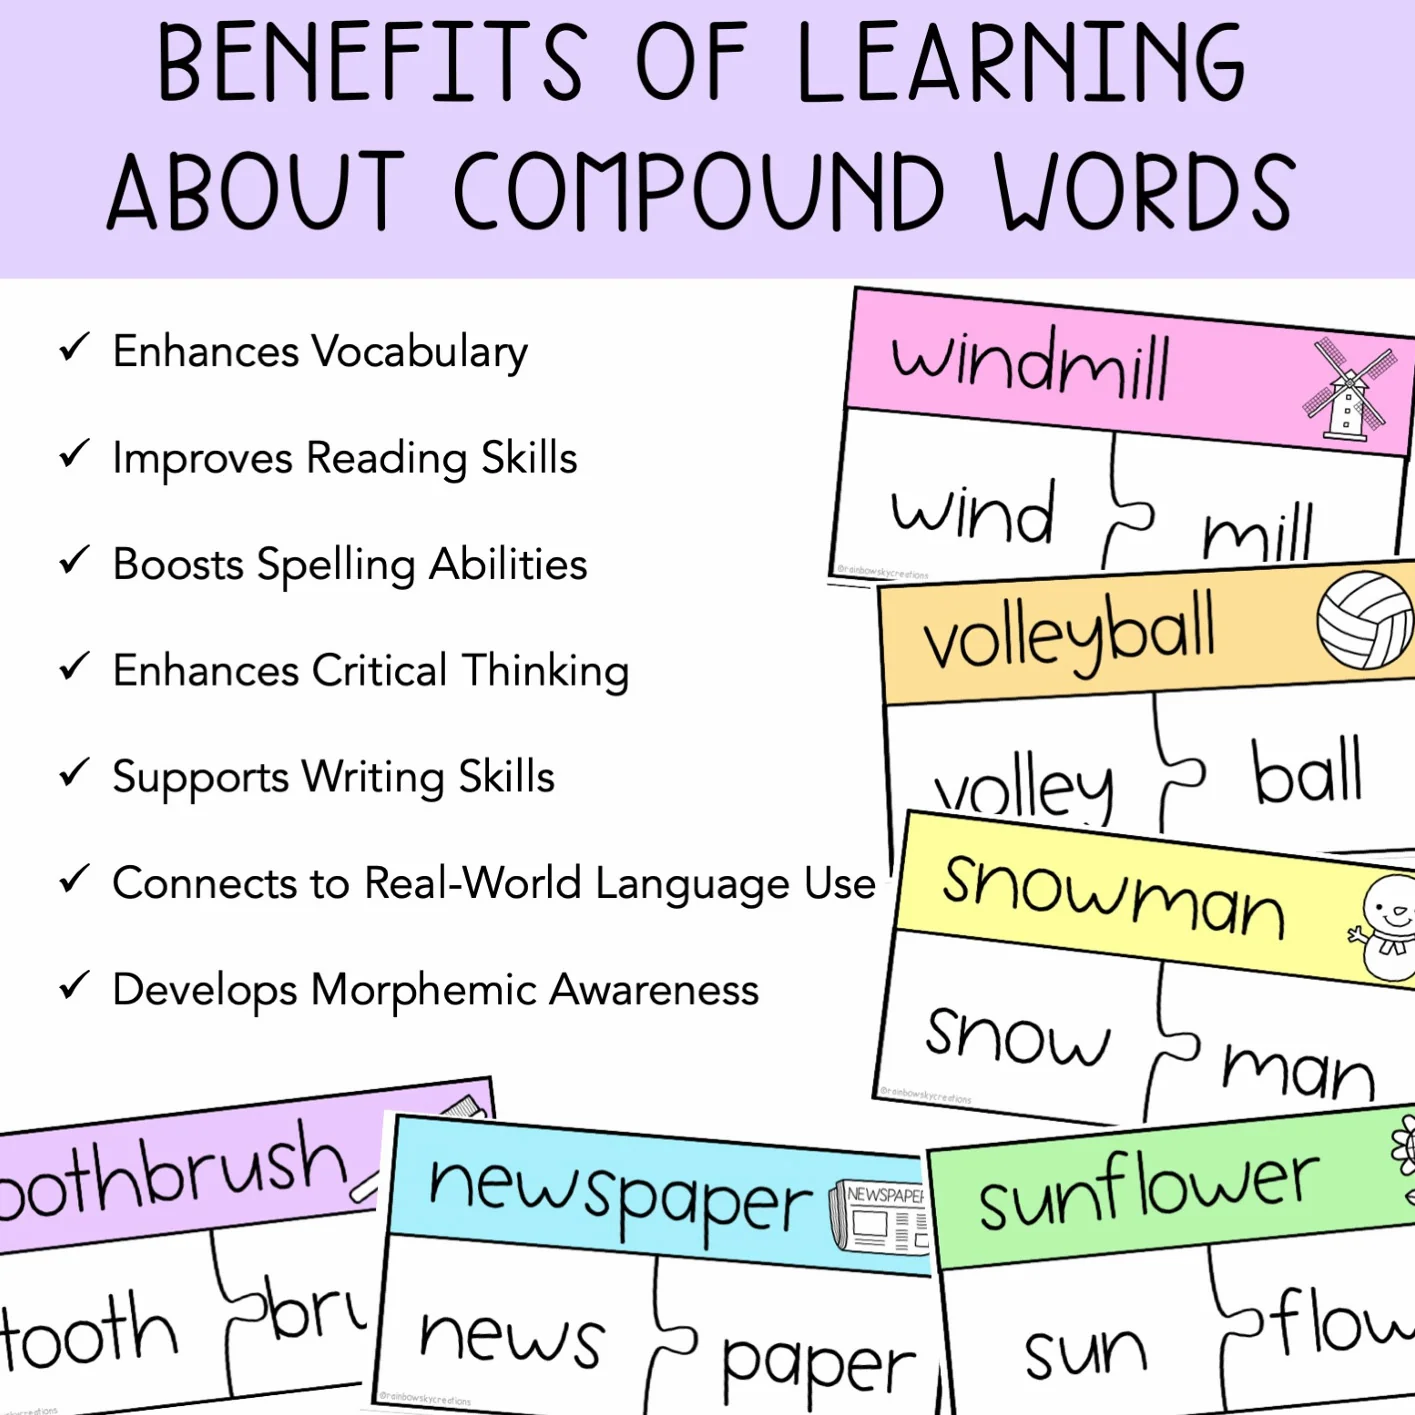 BENEFITS OF LEARNING
ABOUT COMPOUND WORDS
✓ Enhances Vocabulary
✓ Improves Reading Skills
✓ Boosts Spelling Abilities
✓ Enhances Critical Thinking
✓ Supports Writing Skills
✓ Connects to Real-World Language Use
✓ Develops Morphemic Awareness
windmill
wind mill
@rainbowskycreations
volleyball
volley ball
snowman
snow man
@rainbowskycreations
oothbrush
tooth bru
newspaper
NEWSPAPER
news paper
@rainbowskycreations
sunflower
sun flow